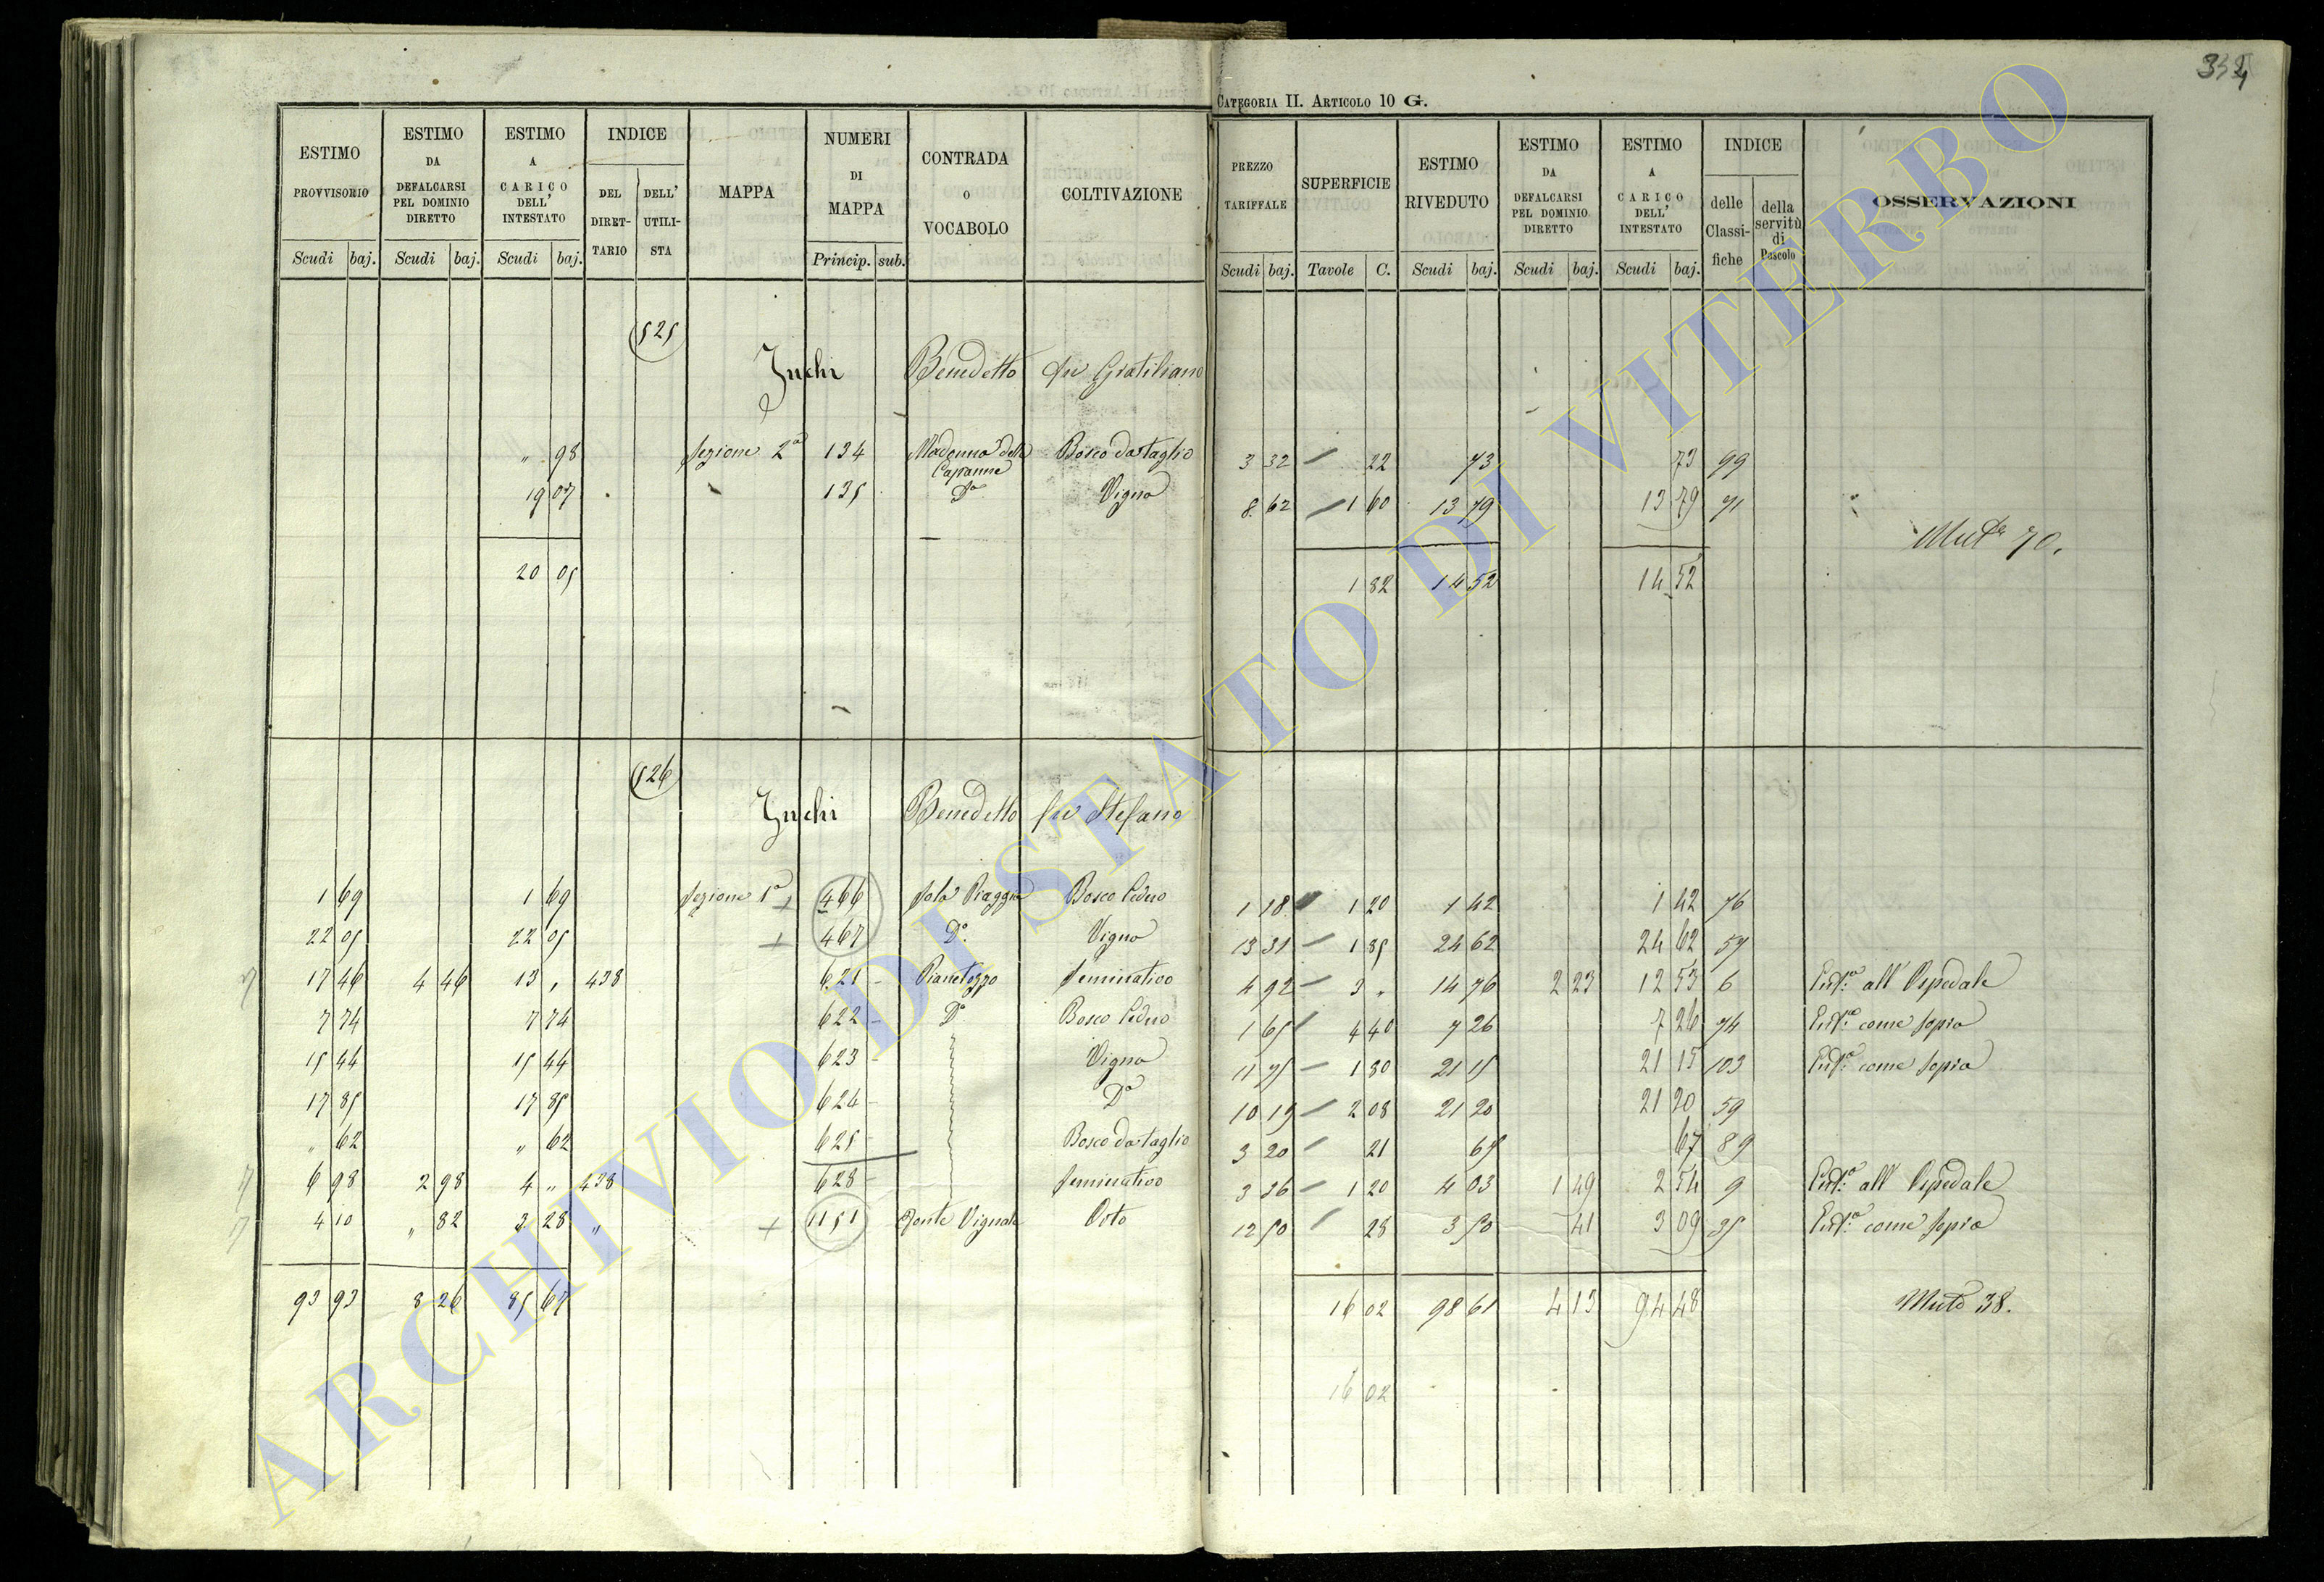 334
CATEGORIA II. ARTICOLO 10 G.
ESTIMO PROVVISORIO Scudi baj.
ESTIMO DA DEFALCARSI PEL DOMINIO DIRETTO Scudi baj.
ESTIMO A CARICO DELL' INTESTATO Scudi baj.
INDICE DEL DIRETTARIO DELL' UTILISTA
MAPPA
NUMERI DI MAPPA Princip. sub.
CONTRADA O VOCABOLO
COLTIVAZIONE
PREZZO TARIFFALE Scudi baj.
SUPERFICIE Tavole C.
ESTIMO RIVEDUTO Scudi baj.
ESTIMO DA DEFALCARSI PEL DOMINIO DIRETTO Scudi baj.
ESTIMO A CARICO DELL' INTESTATO Scudi baj.
INDICE delle Classifiche della servitù di Pascolo
OSSERVAZIONI
525
Benedetto fu Gratiliano
" 98 Sezione 2a 134 Madonna delle Capanne Bosco da taglio 3 32 22 73 73 99
19 07 135 Do Vigna 8 62 1 60 13 79 13 79 71
20 05 1 82 14 52 14 52
70.
526
Benedetto fu Stefano
1 69 1 69 Sezione 1a + 466 Piaggia Bosco Ceduo 1 18 1 20 1 42 1 42 76
22 05 22 05 + 467 Do Vigna 13 31 1 85 24 62 24 62 57
17 46 4 46 13 " 438 621 Pianetozzo Seminativo 4 92 3 " 14 76 2 23 12 53 6 all' Ospedale
7 74 7 74 622 Do Bosco Ceduo 1 65 4 40 7 26 7 26 74 come sopra
15 44 15 44 623 Vigna 11 75 1 80 21 15 21 15 103 come sopra
17 85 17 85 624 Do 10 19 2 08 21 20 21 20 59
" 62 " 62 625 Bosco da taglio 3 20 21 67 67 89
6 98 2 98 4 " 438 628 Seminativo 3 36 1 20 4 03 1 49 2 54 9 all' Ospedale
4 10 " 82 3 28 " + 1151 Fonte Vignale Orto 12 50 28 3 50 41 3 09 35 come sopra
93 93 8 26 85 67 16 02 98 61 4 13 94 48 38.
16 02
ARCHIVIO DI STATO DI VITERBO